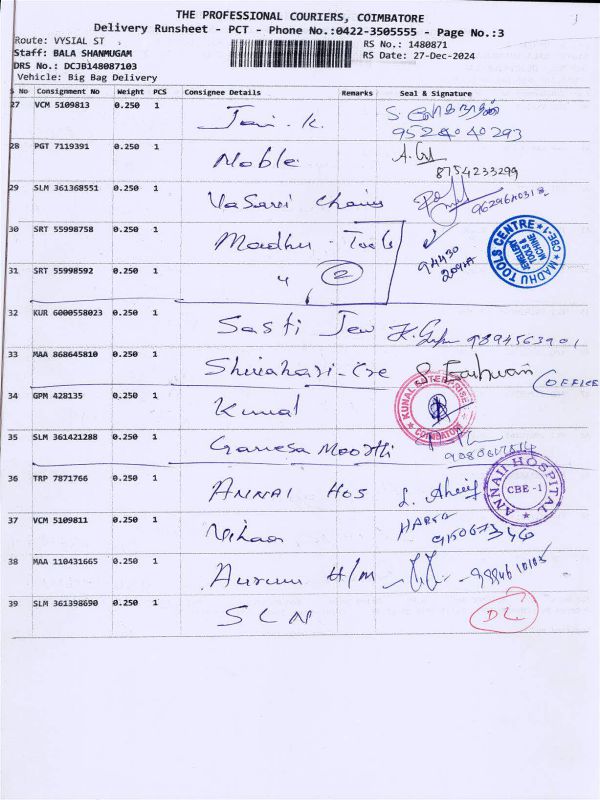 THE PROFESSIONAL COURIERS, COIMBATORE
Delivery Runsheet - PCT - Phone No.:0422-3505555 - Page No.:3
Route: VYSIAL ST RS No.: 1480871
Staff: BALA SHANMUGAM RS Date: 27-Dec-2024
DRS No.: DCJB148087103
Vehicle: Big Bag Delivery
S No Consignment No Weight PCS Consignee Details Remarks Seal & Signature
27 VCM 5109813 0.250 1 Jai . K.
28 PGT 7119391 0.250 1 Noble
8754233299
29 SLM 361368551 0.250 1 Vasavi Chains
30 SRT 55998758 0.250 1 Madhu - Tools
MADHU TOOLS CENTRE CBE-1
JEWELLERY TOOLS & MACHINE
31 SRT 55998592 0.250 1 " 2
32 KUR 6000558023 0.250 1 Sasti Jew 9894563901
33 MAA 868645810 0.250 1 Shivahari - Cre
OFFICE
34 GPM 428135 0.250 1 Kunal
KUNAL ENTERPRISE COIMBATORE
35 SLM 361421288 0.250 1 Ganesa Moorthi
36 TRP 7871766 0.250 1 ANNAI HOS
ANNAII HOSPITAL CBE -1
37 VCM 5109811 0.250 1 Vihaa
38 MAA 110431665 0.250 1 Aurum H/M
39 SLM 361398690 0.250 1 SLN DL